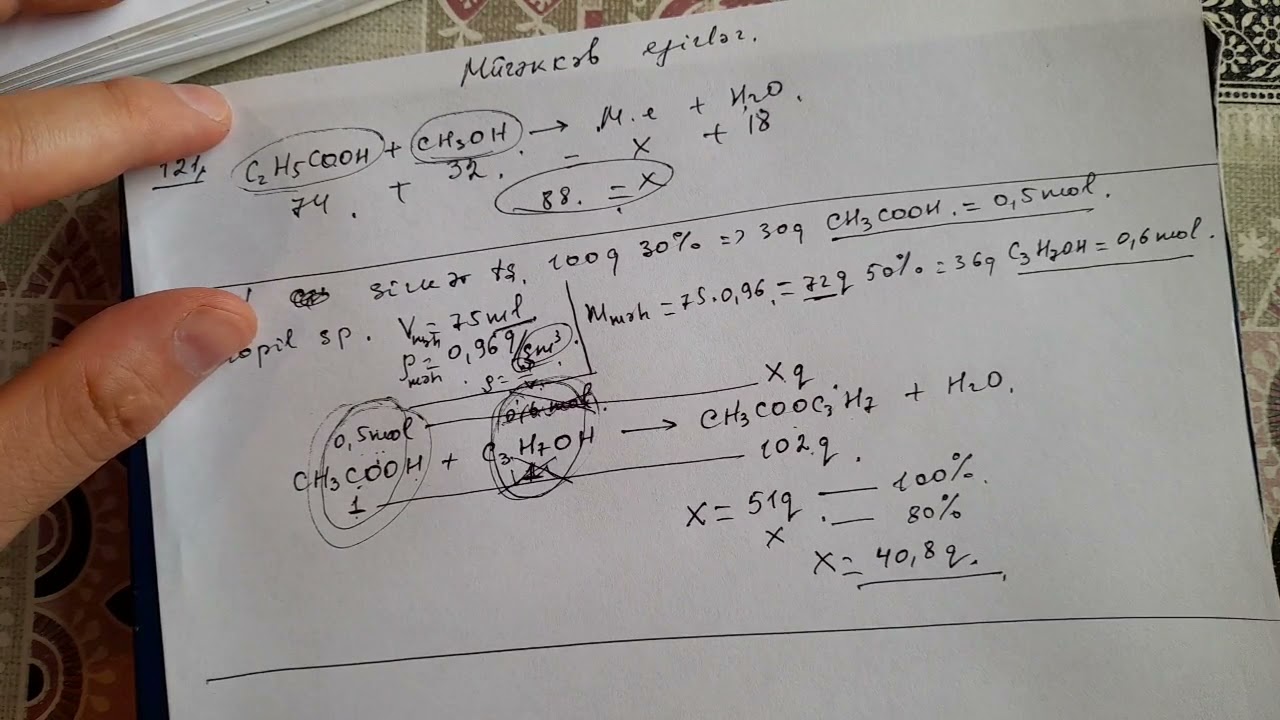 Mürəkkəb efirlər.
121, C₂H₅COOH + CH₃OH → M.e + H₂O.
74 + 32. = X + 18
88. = X
sirkə tş. 100q 30% => 30q CH₃COOH. = 0,5mol.
opil sp. Vməh = 75ml
ρməh = 0,96 q/sm³.
mməh = 75.0,96 = 72q 50% = 36q C₃H₇OH = 0,6mol.
0,5mol 0,6 mol. Xq
CH₃COOH + C₃H₇OH → CH₃COOC₃H₇ + H₂O.
1 102q.
X = 51q — 100%.
X — 80%
X = 40,8q.